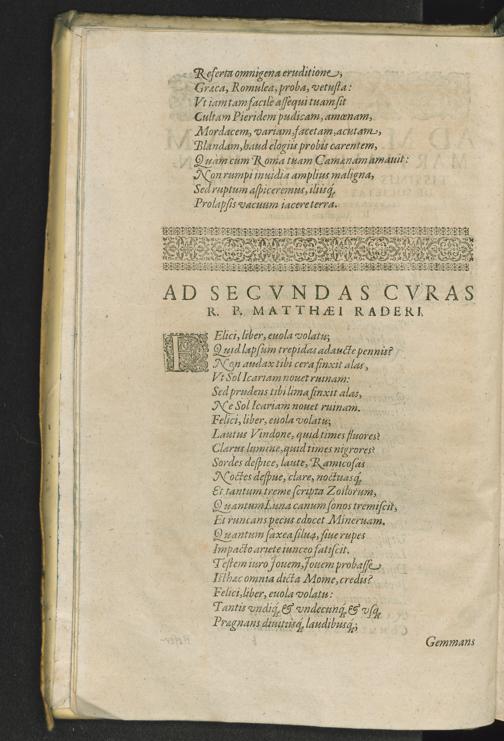 Referta omnigena eruditione,
Græca, Romulea, proba, vetusta:
Vt iam tam facile assequi tuam sit
Cultam Pieridem pudicam, amœnam,
Mordacem, variam, facetam, acutam,
Blandam, haud elogiis probis carentem,
Quam cum Roma tuam Camœnam amauit:
Non rumpi inuidia amplius maligna,
Sed ruptum aspiceremus, iliisq́;
Prolapsis vacuum iacere terra.
AD SECVNDAS CVRAS
R. P. MATTHÆI RADERI.
FElici, liber, euola volatu;
Quid lapsum trepidas adaucte pennis?
Non audax tibi cera finxit alas,
Vt Sol Icariam nouet ruinam:
Sed prudens tibi lima finxit alas,
Ne Sol Icariam nouet ruinam.
Felici, liber, euola volatu;
Lautus Vindone, quid times fluores?
Clarus lumine, quid times nigrores?
Sordes despice, laute, Ramicosas
Noctes despue, clare, noctuasq́;
Et tantum treme scripta Zoilorum,
Quantum Luna canum sonos tremiscit,
Et runcans pecus edocet Mineruam.
Quantum saxea silua, siue rupes
Impacto ariete iunceo fatiscit.
Testem iuro Jouem, Jouem probasse
Isthæc omnia dicta Mome, credis?
Felici, liber, euola volatu:
Tantis vndiq́; & vndecunq́; & vsq́;
Prægnans diuitiisq́; laudibusq́;
Gemmans